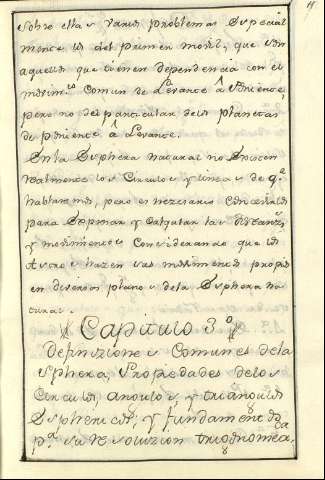 sobre ella y varios problemas Special
mente los del primer movil, que son
aquellos que tienen dependencia con el
movim.to comun de Levante â Poniente,
pero no del particular delos planetas
de poniente â Levante.
En la Sphera natural no
realmente los Circulos y lineas de q.e
hablaremos, pero es necesario
para formar y Calcular las
y movimientos Considerando que los
Astros hazen sus movimientos propios
en diversos planos dela Sphera na
tural.
Capitulo 3º
Definiziones Comunes dela
Sphera, Propiedades delos
Circulos, angulos, y triangulos
Sphericos; y fundamentos
p.a su resoluzion trigonomca.